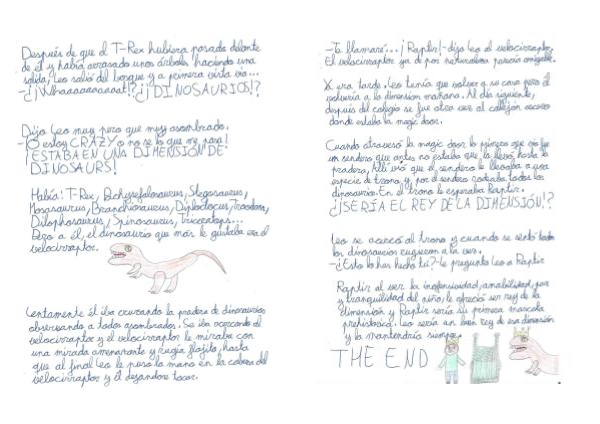 Después de que el T-Rex hubiera pasado delante
de él y había arrasado unos árboles haciendo una
salida, Leo salió del bosque y a primera vista vio...
-¿¡Whaaaaaaaaat!? ¿¡DINOSAURIOS!?
Dijo Leo muy pero que muy asombrado.
-¡O estoy CRAZY o no se lo que me pasa!
¡ESTABA EN UNA DIMENSIÓN DE
DINOSAURS!
Había: T-Rex, Pachycefalosaurus, Stegosaurus,
Mosasaurus, Branchiosaurus, Diplodocus, Troodons,
Dilophosaurus, Spinosaurus, Triceratops...
Pero a él, el dinosaurio que más le gustaba era el
velocirraptor.
Lentamente él iba cruzando la pradera de dinosaurios
observando a todos asombrados. Se iba acercando al
velocirraptor y el velocirraptor le miraba con
una mirada amenazante y rugía flojito, hasta
que al final Leo le puso la mano en la cabeza del
velocirraptor y él dejandose tocar.
-Te llamaré... ¡Raptir!- dijo Leo al velocirraptor.
El velocirraptor de por naturaleza parecía amigable.
Y era tarde. Leo tenía que volver a su casa pero él
volvería a la dimensión mañana. Al día siguiente,
después del colegio se fue otra vez al callejón oscuro
donde estaba la magic door.
Cuando atravesó la magic door lo primero que vio fue
un sendero que antes no estaba que la llevó hasta la
pradera, Allí vió que el sendero le llevaba a una
especie de trono y por el sendero rodaba todos los
dinosaurios. En el trono le esperaba Raptir.
¿¡SERÍA EL REY DE LA DIMENSIÓN!?
Leo se acercó al trono y cuando se sentó todos
los dinosaurios rugieron a la vez.
-¿Esto lo has hecho tú?-le preguntó Leo a Raptir
Raptir al ver la inofensividad, amabilidad, paz
y tranquilidad del niño, le ofreció ser rey de la
dimensión y Raptir sería su primera mascota
prehistórica. Leo sería un buen rey de esa dimensión
y la mantendría siempre.
THE END